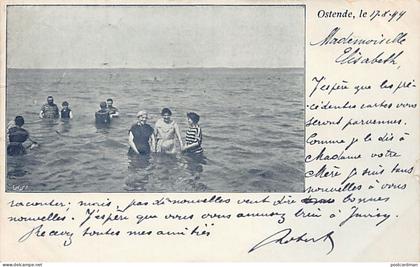 Ostende, le 17-8-99
Mademoiselle
Elisabeth,
J'espère que les pré-
cédentes cartes vous
seront parvenues.
Comme je le dis à
Madame votre
Mère je suis sans
nouvelles à vous
raconter, mais, pas de nouvelles veut dire bonnes
nouvelles. J'espère que vous vous amusez bien à
Recevez toutes mes amitiés
Robert